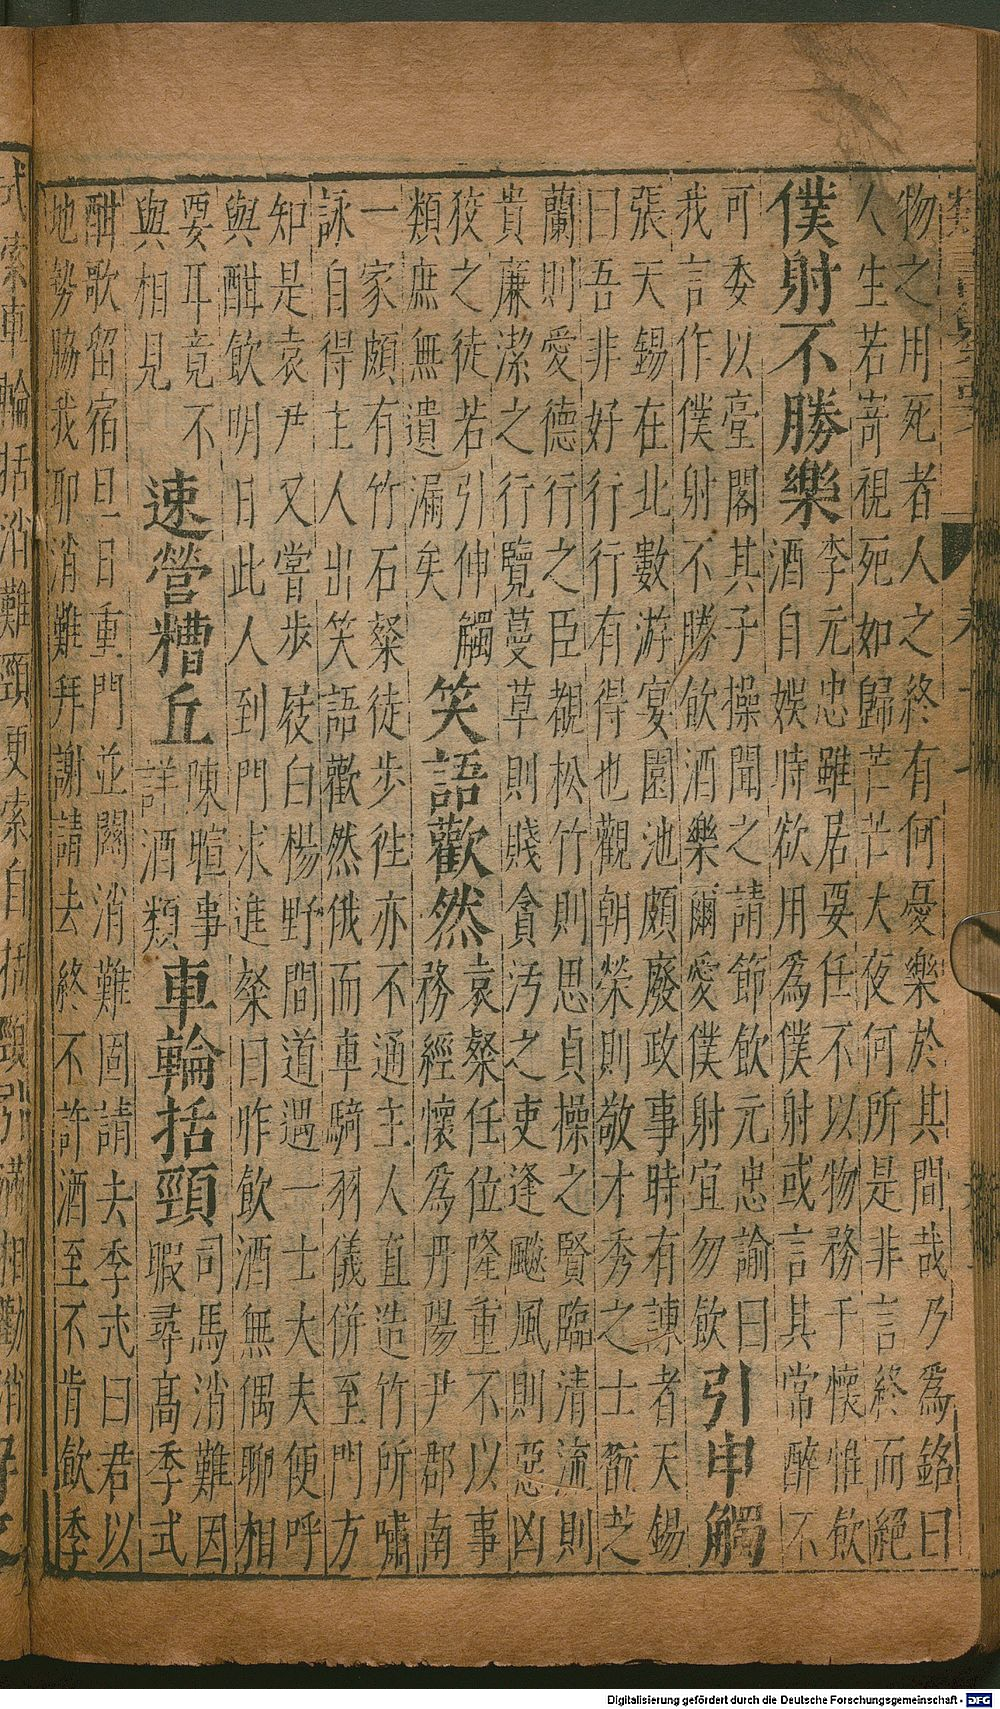 物之用死者人之終有何憂樂於其間哉乃爲銘曰
人生若寄視死如歸芒芒大夜何所是非言終而絕
僕射不勝樂
李元忠雖居要任不以物務干懷惟飲
酒自娛時欲用爲僕射或言其常醉不
可委以臺閣其子操聞之請節飲元忠諭曰
我言作僕射不勝飲酒樂爾愛僕射宜勿飲
引申觸
張天錫在北數游宴園池頗廢政事時有諫者天錫
曰吾非好行行有得也觀朝榮則敬才秀之士翫芝
蘭則愛德行之臣覩松竹則思貞操之賢臨清流則
貴廉潔之行覽蔓草則賤貪污之吏逢飈風則惡凶
狡之徒若引伸觸
類庶無遺漏矣
笑語歡然
袁粲任位隆重不以事
務經懷爲丹陽尹郡南
一家頗有竹石粲徒步徃亦不通主人直造竹所嘯
詠自得主人出笑語歡然俄而車騎羽儀併至門方
知是袁尹又嘗步屐白楊野間道遇一士大夫便呼
與酣飲明日此人到門求進粲曰昨飲酒無偶聊相
要耳竟不
與相見
速營糟丘
陳暄事
詳酒類
車輪括頸
司馬消難因
暇尋高季式
酣歌留宿旦日重門並關消難固請去季式曰君以
地勢脇我耶消難拜謝請去終不許酒至不肯飲季
式索車輪括消難頸更索自括頸引滿相勸消
Digitalisierung gefördert durch die Deutsche Forschungsgemeinschaft - DFG